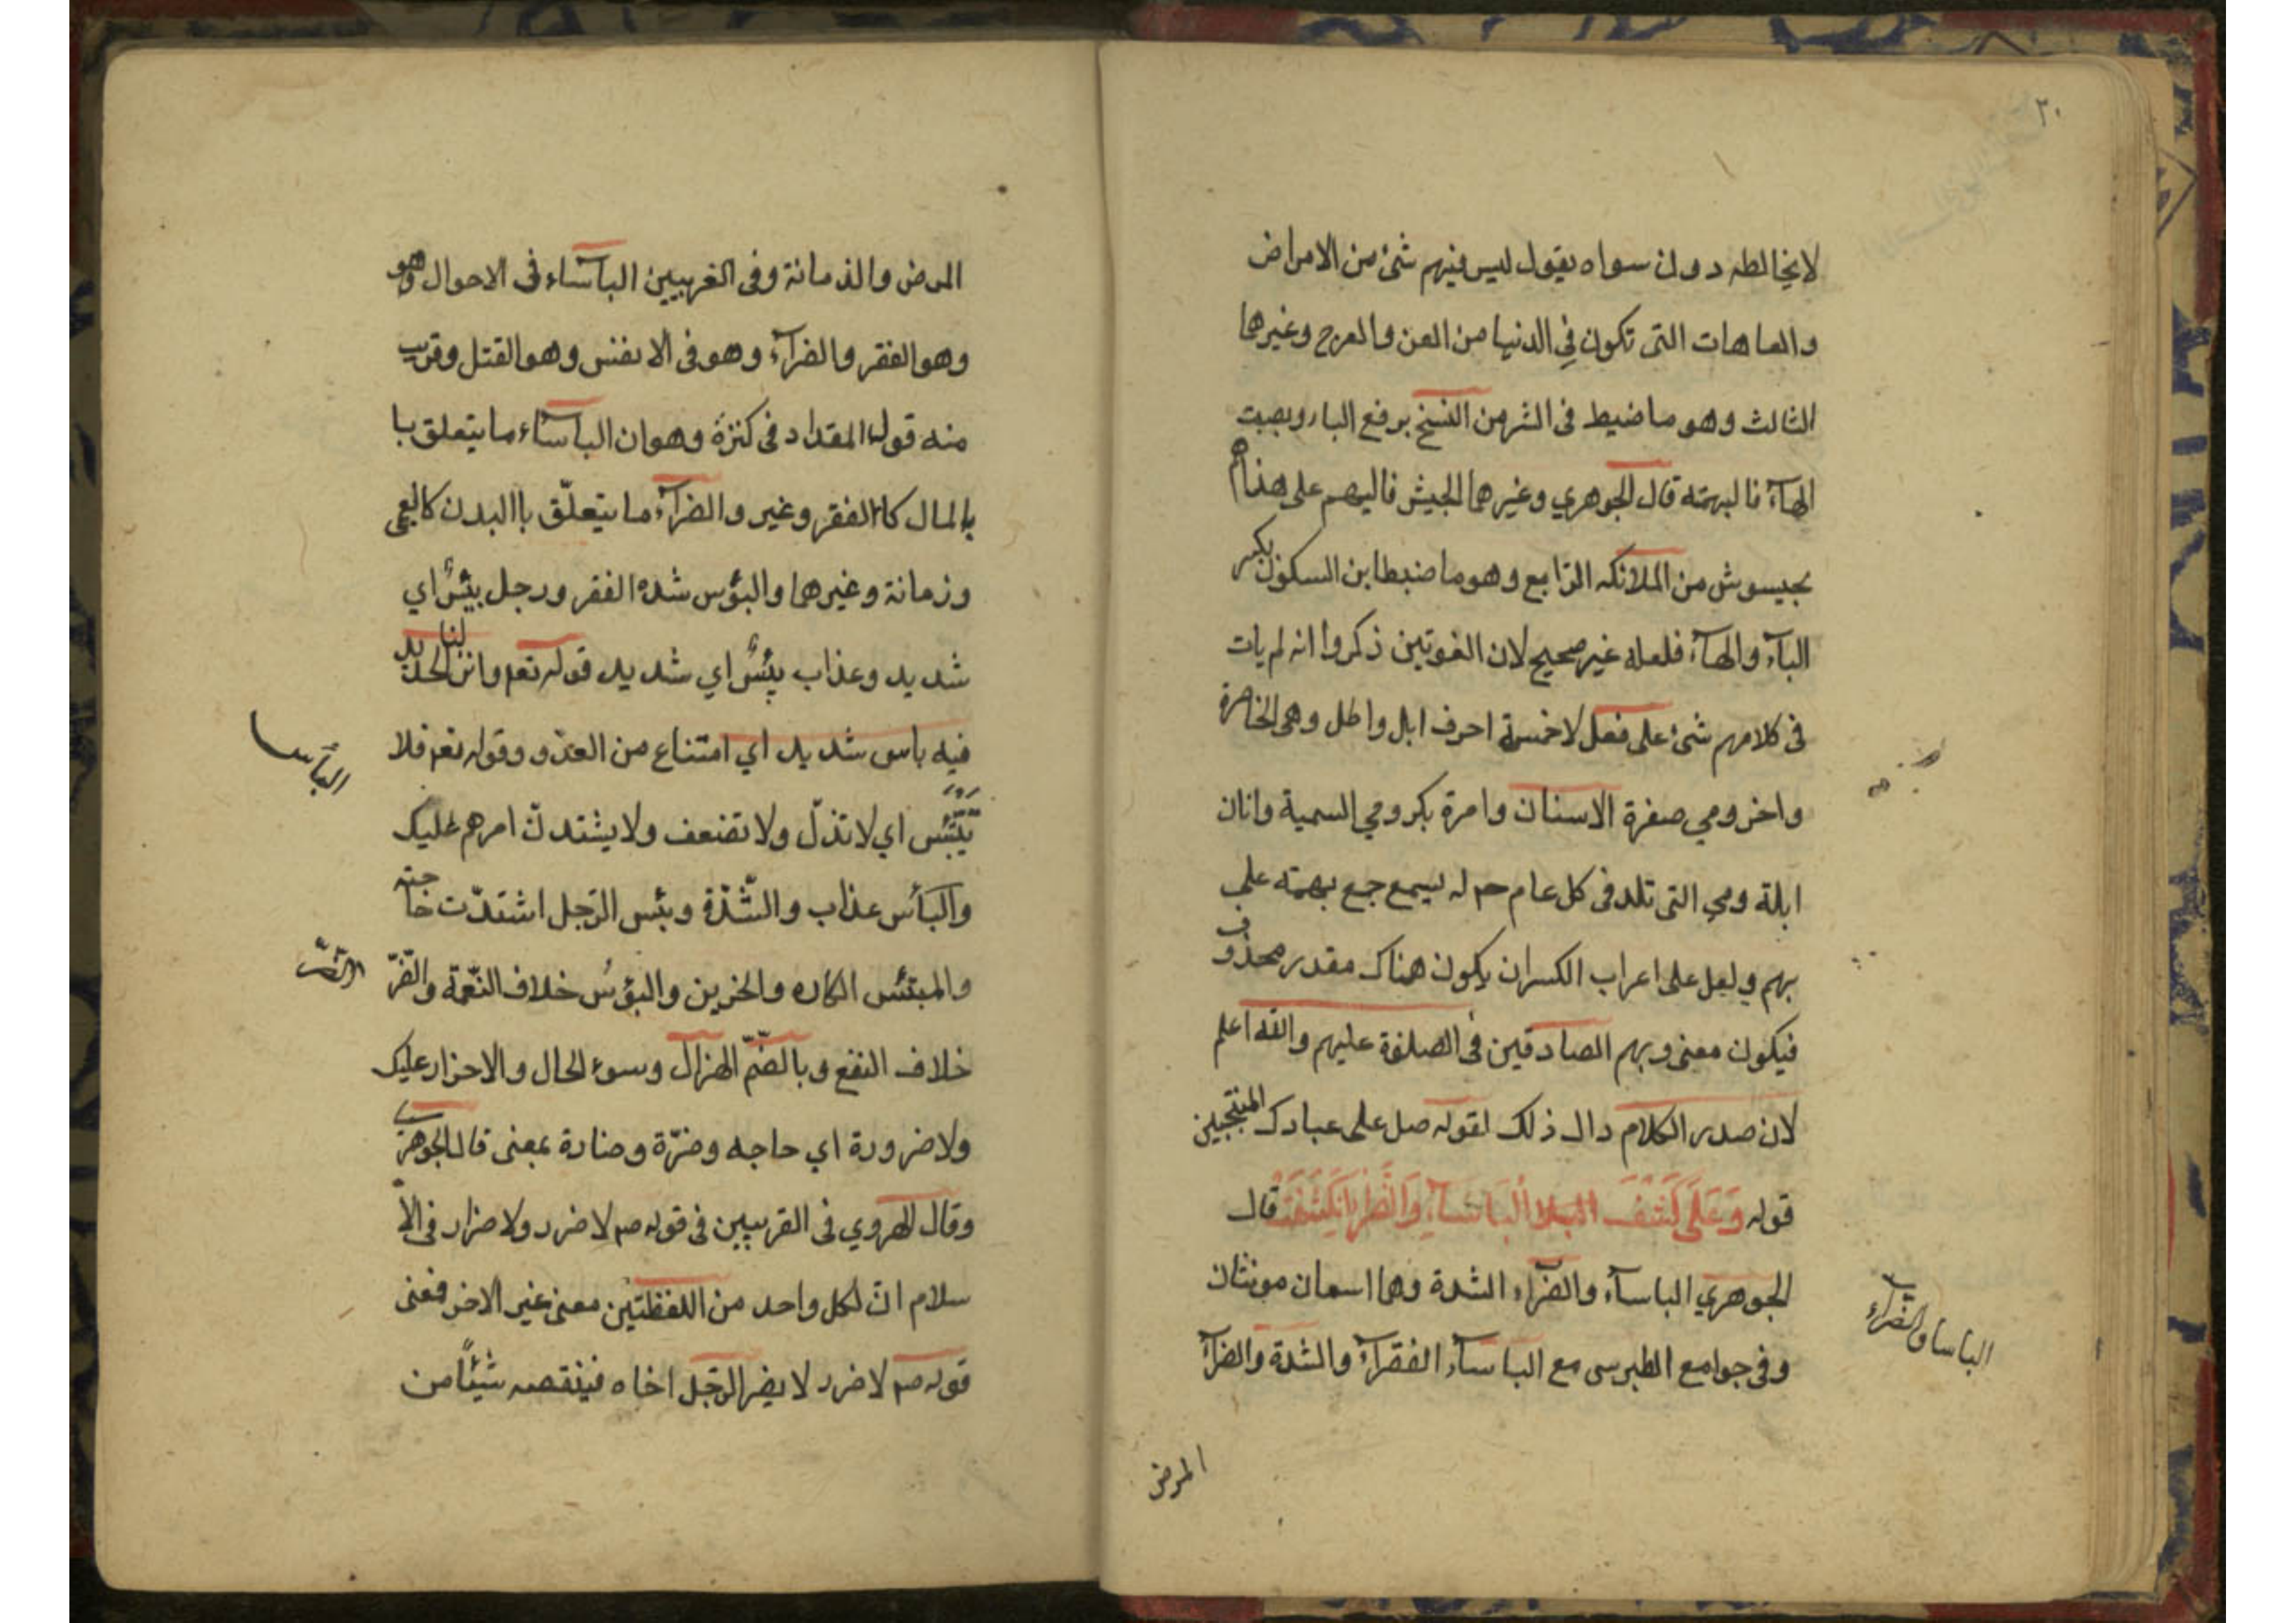 ٣٠
لايخالطه دون سواه يقول ليس فيهم شئ من الامراض
والعاهات التى تكون فى الدنيا من العن والعرج وغيرها
الثالث وهو ما ضبط فى الشر من النسخ برفع البا
الهآء فا لبهمته قال الجوهري وغيرهما الجيش فا لبهم على هذا
من الملائكه الرّابع وهو ما ضبطا بن السكون بكسر
البآء والهآء فلعله غير صحيح لان الغوتين ذكروا انه لم يات
فى كلامهم شئ على فعل لاخمسة احرف ابل واطل وهى الخاصرة
واخر ومي صفرة الاسنان وامرة بكر ومي السمية واتان
ابلة ومي التى تلد فى كل عام جمع بهمته على
بهم ولعل على اعراب الكسران يكون هناك مقدر محذوف
فيكون معنى وبهم الصادقين فى الصلوة عليهم والله اعلم
لان صدر الكلام دال ذلك لقوله صل على عبادك المنتجبين
قوله وَعَلَى كَشْفِ البلا البَاسَآءِ وَالضَّرا انكَشَفَتْ قال
الجوهري الباسآء والضرّاء الشدة وهما اسمان مونثان
وفى جوامع الطبرسى مع الباسآء الفقرآء والشدة والضرآء
الباسا والضرآء
المرض
المرض والذمانة وفى الغريبين الباسآء فى الاحوال وهو
وهو الفقر والضرآء وهو فى الانفس وهو القتل وقريب
منه قوله المقداد فى كنزة وهو ان الباسآء ما يتعلق با
بالمال كاالفقر وغير والضرآء ما يتعلّق باالبدن كالعمى
وزمانة وغيرهما والبؤس شده الفقر ورجل بيئسٌ اي
شديد وعذاب بئسٌ اي شديد قوله تعم وانزلنا الحديد
فيه باس شديد اي امتناع من العدو وقوله تعم فلا
تبتئس اي لا تذلّ ولا تضعف ولا يشتدنّ امرهم عليك
والبأس عذاب والشّدّة وبئس الرّجل اشتدّت حاجته
والمبتئس الكاره والحزين والبؤس خلاف النّعمة والضّرّ
خلاف النفع وبالضّمّ الهزال وسوء الحال والاحزار عليك
ولا ضرورة اي حاجه وضرّة وضارة بمعنى قال الجوهري
وقال الهروي فى القريبين فى قوله صم لا ضرر ولا ضرار فى الا
سلام انّ لكل واحد من اللفظتين معنى غير الاخر فمعنى
قوله صم لا ضرر لا يضر الرّجل اخاه فينقصه شيئًا من
البأسا
الضّرّ